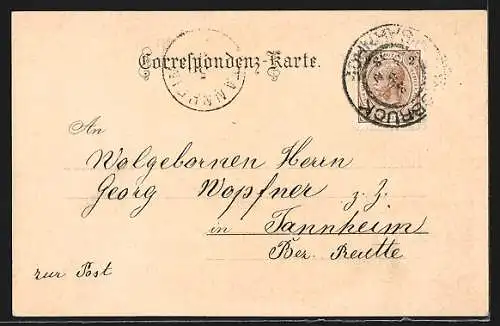 Correspondenz-Karte.
TANNHEIM
2
An
Wolgebornen Herrn
Georg Wopfner z. Z.
in Tannheim
Bez. Reutte
zur Post